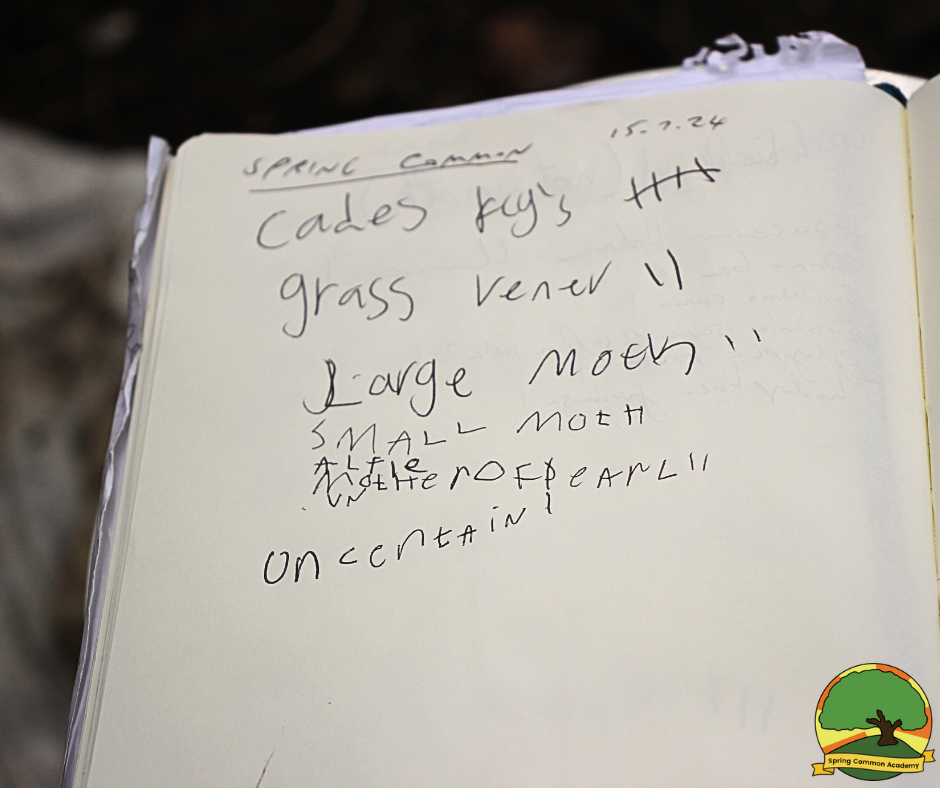 SPRING COMMON 15.7.24
cades fly's
grass vener 11
Large Moth 11
SMALL MOTH
ALFIE
MOtHerOFpeArL 11
UN
UncertAin 1
Spring Common Academy